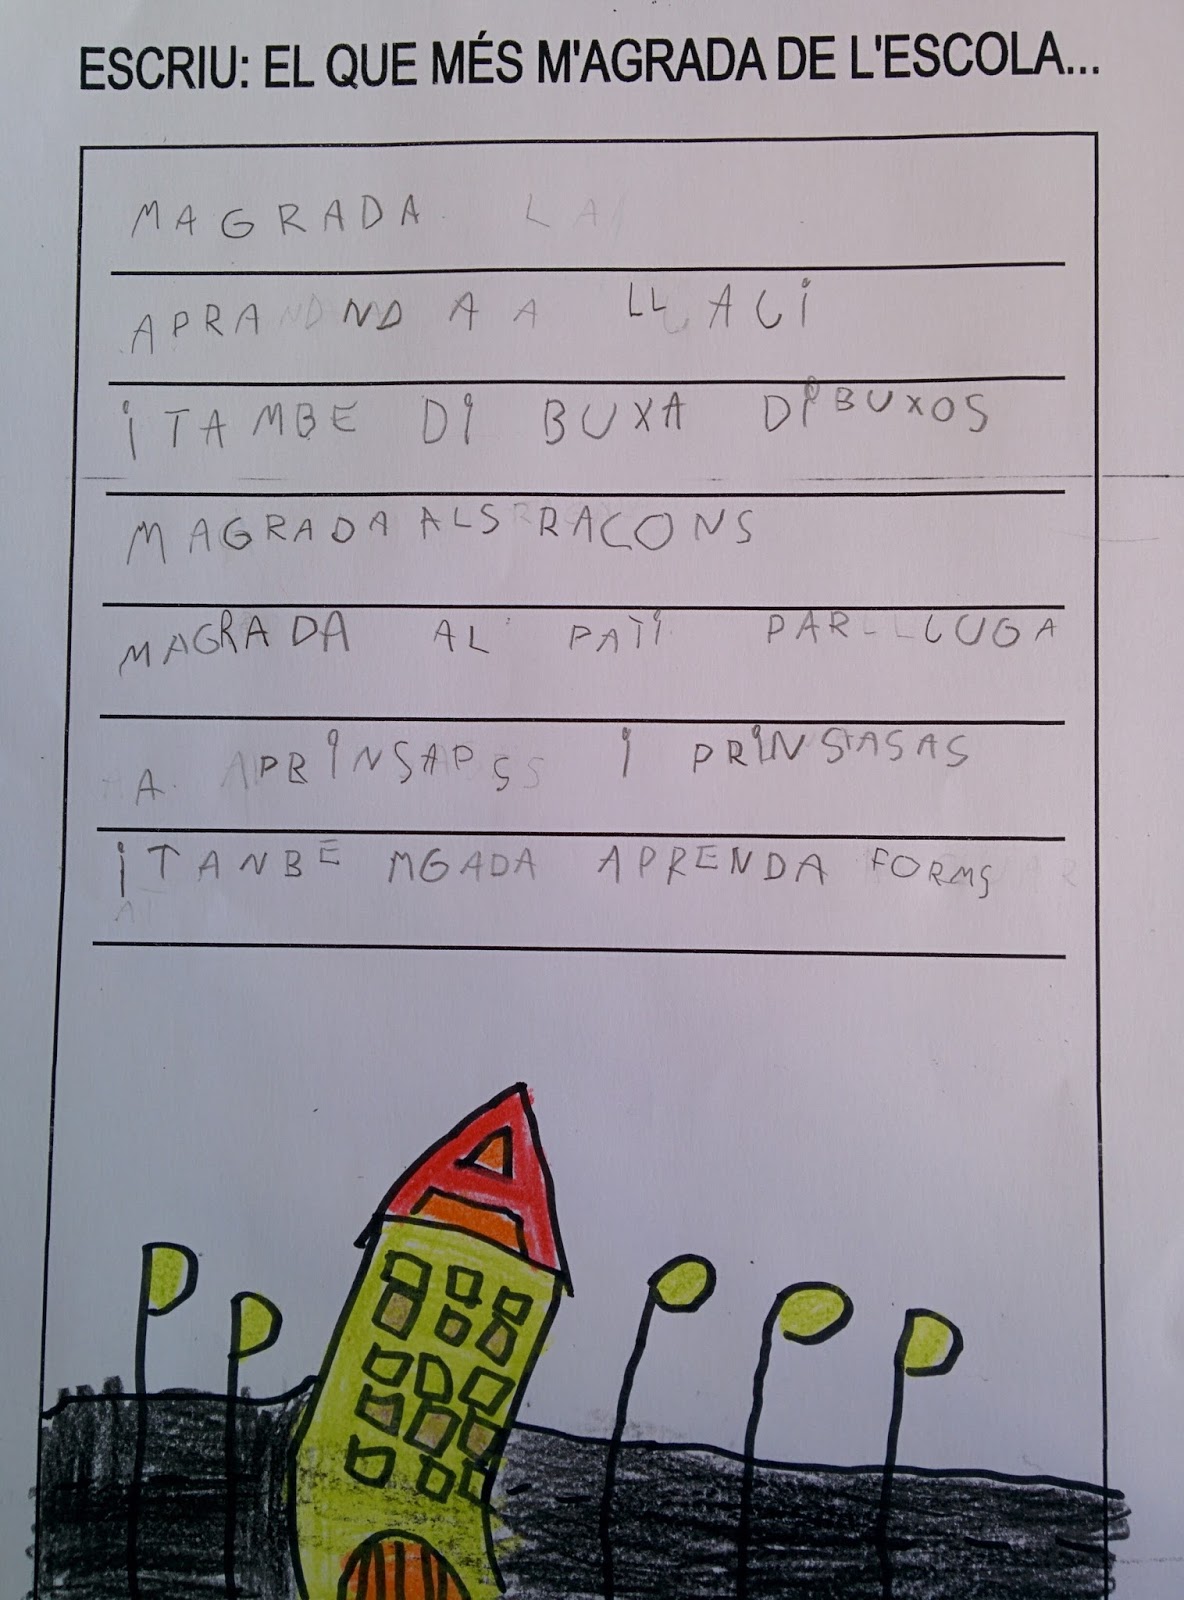 ESCRIU: EL QUE MÉS M'AGRADA DE L'ESCOLA...
MAGRADA LA
APRANDND A A LLACI
i TAMBE Di BUXA DiBUXOS
MAGRADA ALS RACONS
MAGRADA AL PATi PAR LLUGA
A PRiNSAPS i PRiNSASAS
i TANBE MGADA APRENDA FORMS